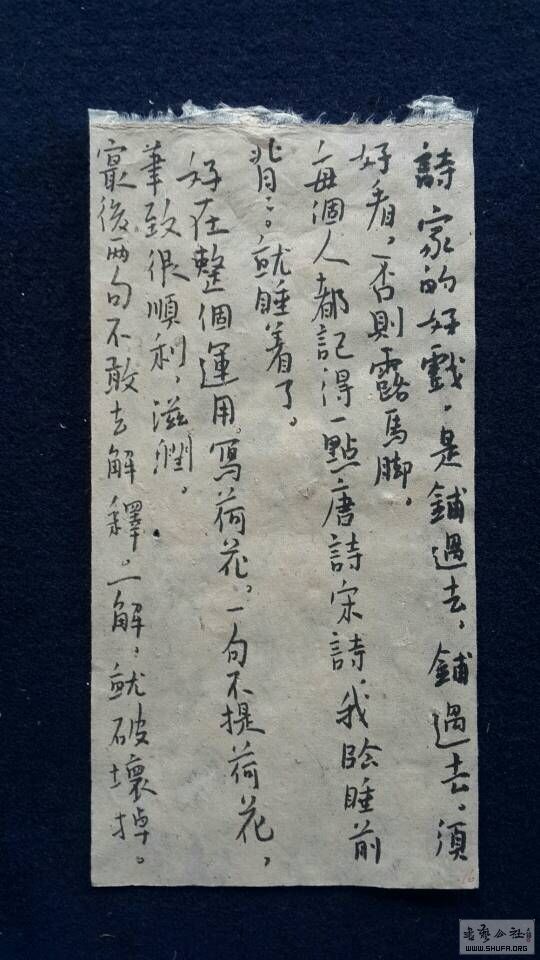 詩家的好戲，是鋪過去，鋪過去。須
好看，否則露馬脚。
每個人都記得一點唐詩宋詩，我臨睡前
背背。就睡着了。
好在整個運用。寫荷花，一句不提荷花，
筆致很順利，滋潤。
最後兩句不敢去解釋。一解，就破壞掉。
书艺公社
WWW.SHUFA.ORG